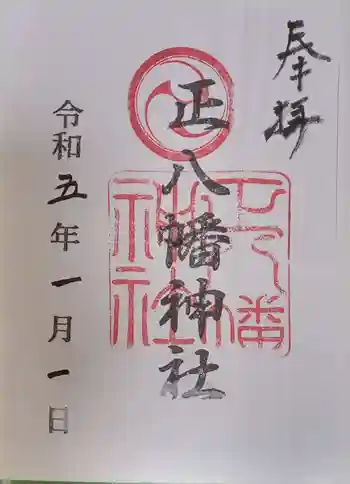 奉拝
正八幡神社
令和五年一月一日
正八幡
神社